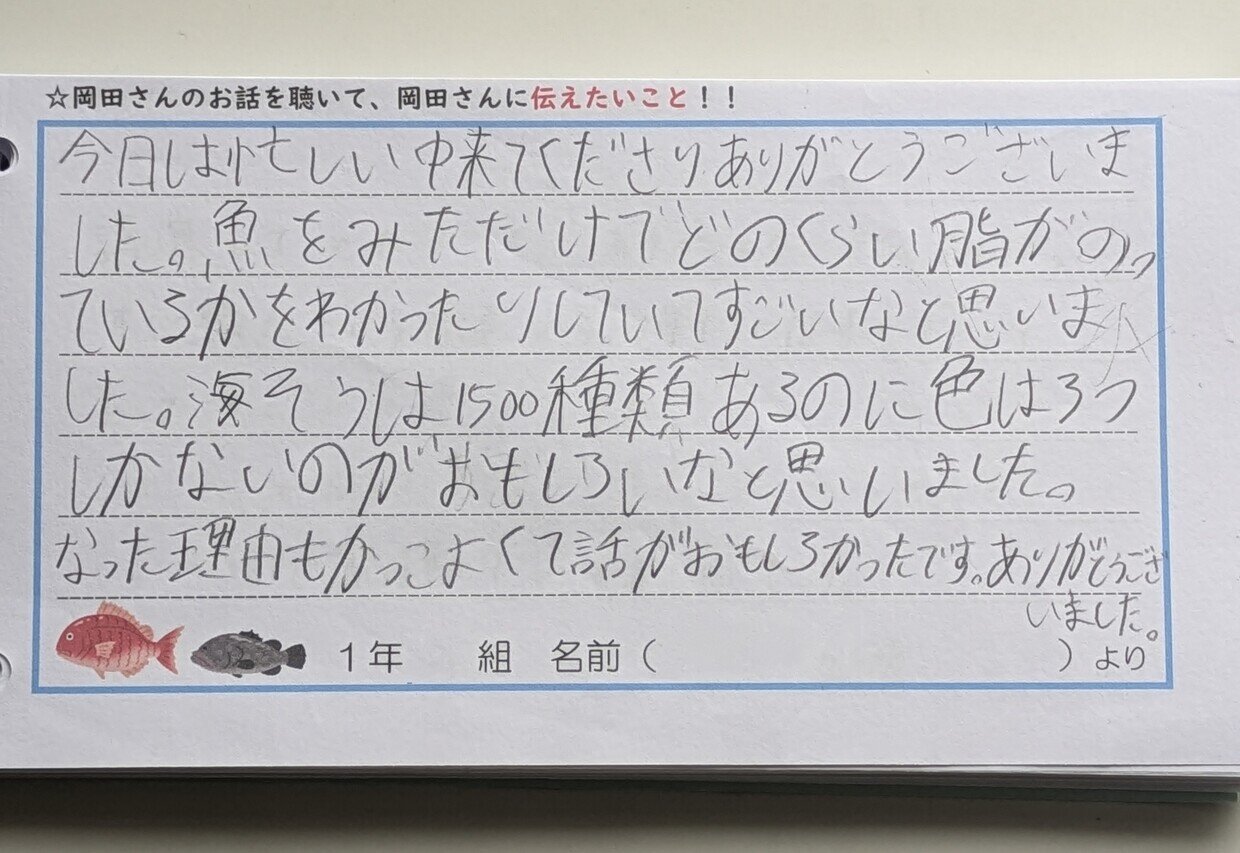 ☆岡田さんのお話を聴いて、岡田さんに伝えたいこと！！
今日は忙しい中来てくださりありがとうございま
した。魚をみただけでどのくらい脂がのっ
ているかをわかったりしていてすごいなと思いま
した。海そうは1500種類あるのに色は3つ
しかないのがおもしろいなと思いました。
なった理由もかっこよくて話がおもしろかったです。ありがとうござ
いました。
1年 組 名前( )より